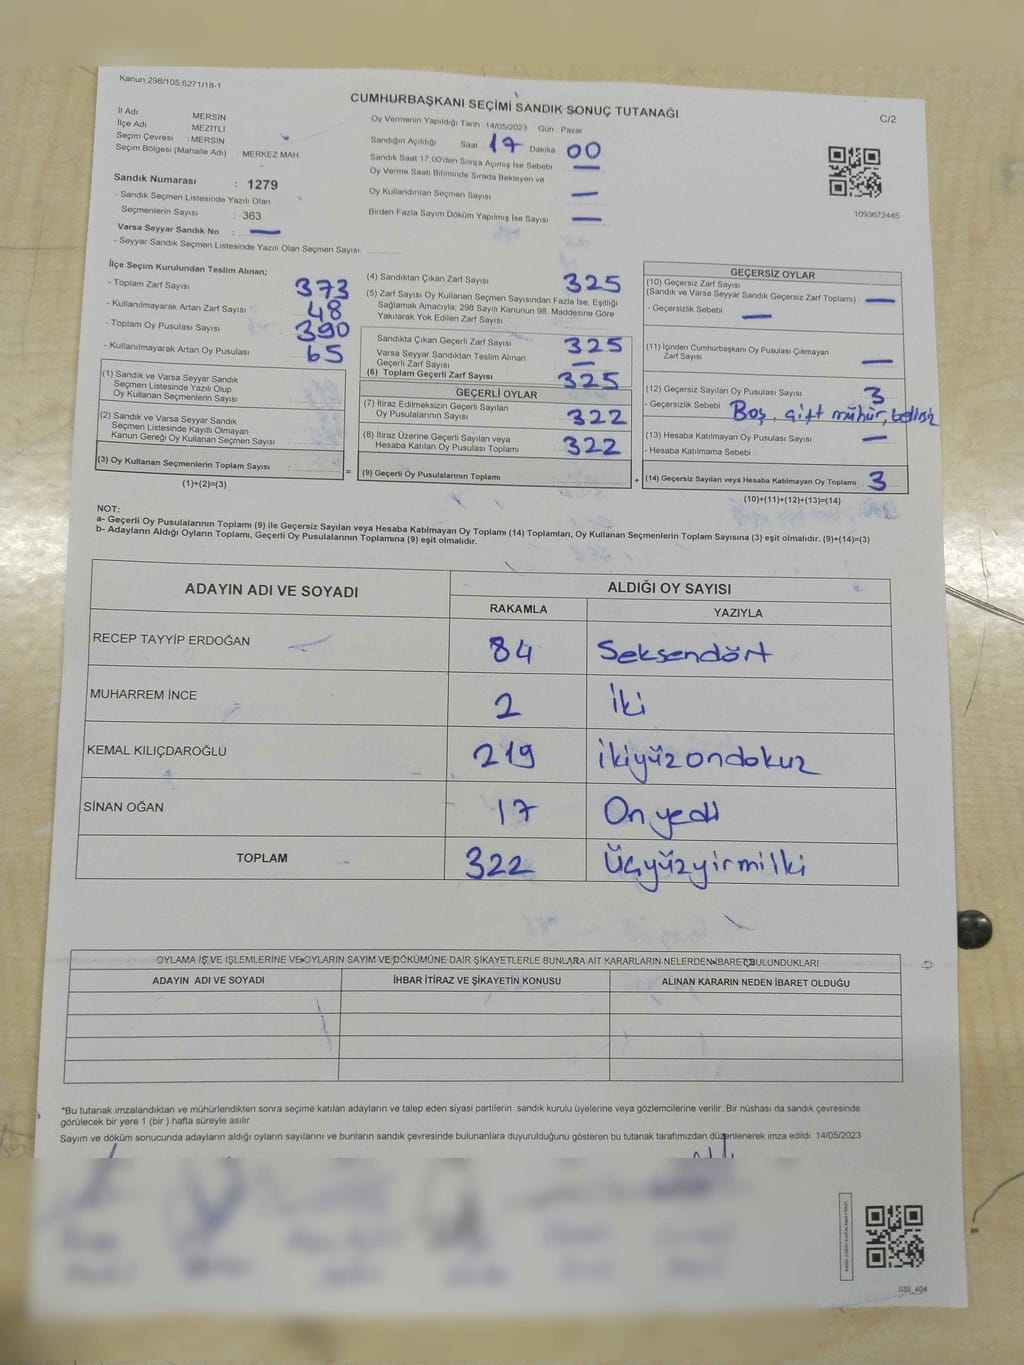 Kanun,298/105,6271/18-1
CUMHURBAŞKANI SEÇİMİ SANDIK SONUÇ TUTANAĞI
C/2
İl Adı MERSİN
İlçe Adı MEZİTLİ
Seçim Çevresi : MERSİN
Seçim Bölgesi (Mahalle Adı) : MERKEZ MAH
Sandık Numarası : 1279
- Sandık Seçmen Listesinde Yazılı Olan
Seçmenlerin Sayısı : 363
Varsa Seyyar Sandık No : —
- Seyyar Sandık Seçmen Listesinde Yazılı Olan Seçmen Sayısı:
Oy Vermenin Yapıldığı Tarih :14/05/2023 Gün : Pazar
Sandığın Açıldığı Saat 17 Dakika 00
Sandık Saat 17:00'den Sonra Açımış İse Sebebi —
Oy Verme Saati Bitiminde Sırada Bekleyen ve
Oy Kullandırılan Seçmen Sayısı —
Birden Fazla Sayım Döküm Yapılmış İse Sayısı : —
1093672445
İlçe Seçim Kurulundan Teslim Alınan;
- Toplam Zarf Sayısı : 373
- Kullanılmayarak Artan Zarf Sayısı : 48
- Toplam Oy Pusulası Sayısı : 390
- Kullanılmayarak Artan Oy Pusulası : 65
(1) Sandık ve Varsa Seyyar Sandık
Seçmen Listesinde Yazılı Olup
Oy Kullanan Seçmenlerin Sayısı :
(2) Sandık ve Varsa Seyyar Sandık
Seçmen Listesinde Kayıtlı Olmayan
Kanun Gereği Oy Kullanan Seçmen Sayısı :
(3) Oy Kullanan Seçmenlerin Toplam Sayısı : =
(1)+(2)=(3)
(4) Sandıktan Çıkan Zarf Sayısı : 325
(5) Zarf Sayısı Oy Kullanan Seçmen Sayısından Fazla İse, Eşitliği
Sağlamak Amacıyla, 298 Sayılı Kanunun 98. Maddesine Göre
Yakılarak Yok Edilen Zarf Sayısı :
Sandıkta Çıkan Geçerli Zarf Sayısı : 325
Varsa Seyyar Sandıktan Teslim Alınan
Geçerli Zarf Sayısı : —
(6) Toplam Geçerli Zarf Sayısı : 325
GEÇERLİ OYLAR
(7) İtiraz Edilmeksizin Geçerli Sayılan
Oy Pusulalarının Sayısı : 322
(8) İtiraz Üzerine Geçerli Sayılan veya
Hesaba Katılan Oy Pusulası Toplamı : 322
(9) Geçerli Oy Pusulalarının Toplamı : +
GEÇERSİZ OYLAR
(10) Geçersiz Zarf Sayısı
(Sandık ve Varsa Seyyar Sandık Geçersiz Zarf Toplamı) : —
- Geçersizlik Sebebi : —
(11) İçinden Cumhurbaşkanı Oy Pusulası Çıkmayan
Zarf Sayısı : —
(12) Geçersiz Sayılan Oy Pusulası Sayısı : 3
- Geçersizlik Sebebi : Boş, çift mühür, belirsiz
(13) Hesaba Katılmayan Oy Pusulası Sayısı : —
- Hesaba Katılmama Sebebi :
(14) Geçersiz Sayılan veya Hesaba Katılmayan Oy Toplamı : 3
(10)+(11)+(12)+(13)=(14)
NOT:
a- Geçerli Oy Pusulalarının Toplamı (9) ile Geçersiz Sayılan veya Hesaba Katılmayan Oy Toplamı (14) Toplamları, Oy Kullanan Seçmenlerin Toplam Sayısına (3) eşit olmalıdır. (9)+(14)=(3)
b- Adayların Aldığı Oyların Toplamı, Geçerli Oy Pusulalarının Toplamına (9) eşit olmalıdır.
ADAYIN ADI VE SOYADI ALDIĞI OY SAYISI
RAKAMLA YAZIYLA
RECEP TAYYİP ERDOĞAN 84 Seksendört
MUHARREM İNCE 2 İki
KEMAL KILIÇDAROĞLU 219 İkiyüzondokuz
SİNAN OĞAN 17 Onyedi
TOPLAM 322 Üçyüzyirmiiki
OYLAMA İŞ VE İŞLEMLERİNE VE OYLARIN SAYIM VE DÖKÜMÜNE DAİR ŞİKAYETLERLE BUNLARA AİT KARARLARIN NELERDEN İBARET BULUNDUKLARI
ADAYIN ADI VE SOYADI İHBAR İTİRAZ VE ŞİKAYETİN KONUSU ALINAN KARARIN NEDEN İBARET OLDUĞU
*Bu tutanak imzalandıktan ve mühürlendikten sonra seçime katılan adayların ve talep eden siyasi partilerin sandık kurulu üyelerine veya gözlemcilerine verilir .Bir nüshası da sandık çevresinde
görülecek bir yere 1 (bir ) hafta süreyle asılır.
Sayım ve döküm sonucunda adayların aldığı oyların sayılarını ve bunların sandık çevresinde bulunanlara duyurulduğunu gösteren bu tutanak tarafımızdan düzenlenerek imza edildi. 14/05/2023
SSI_404